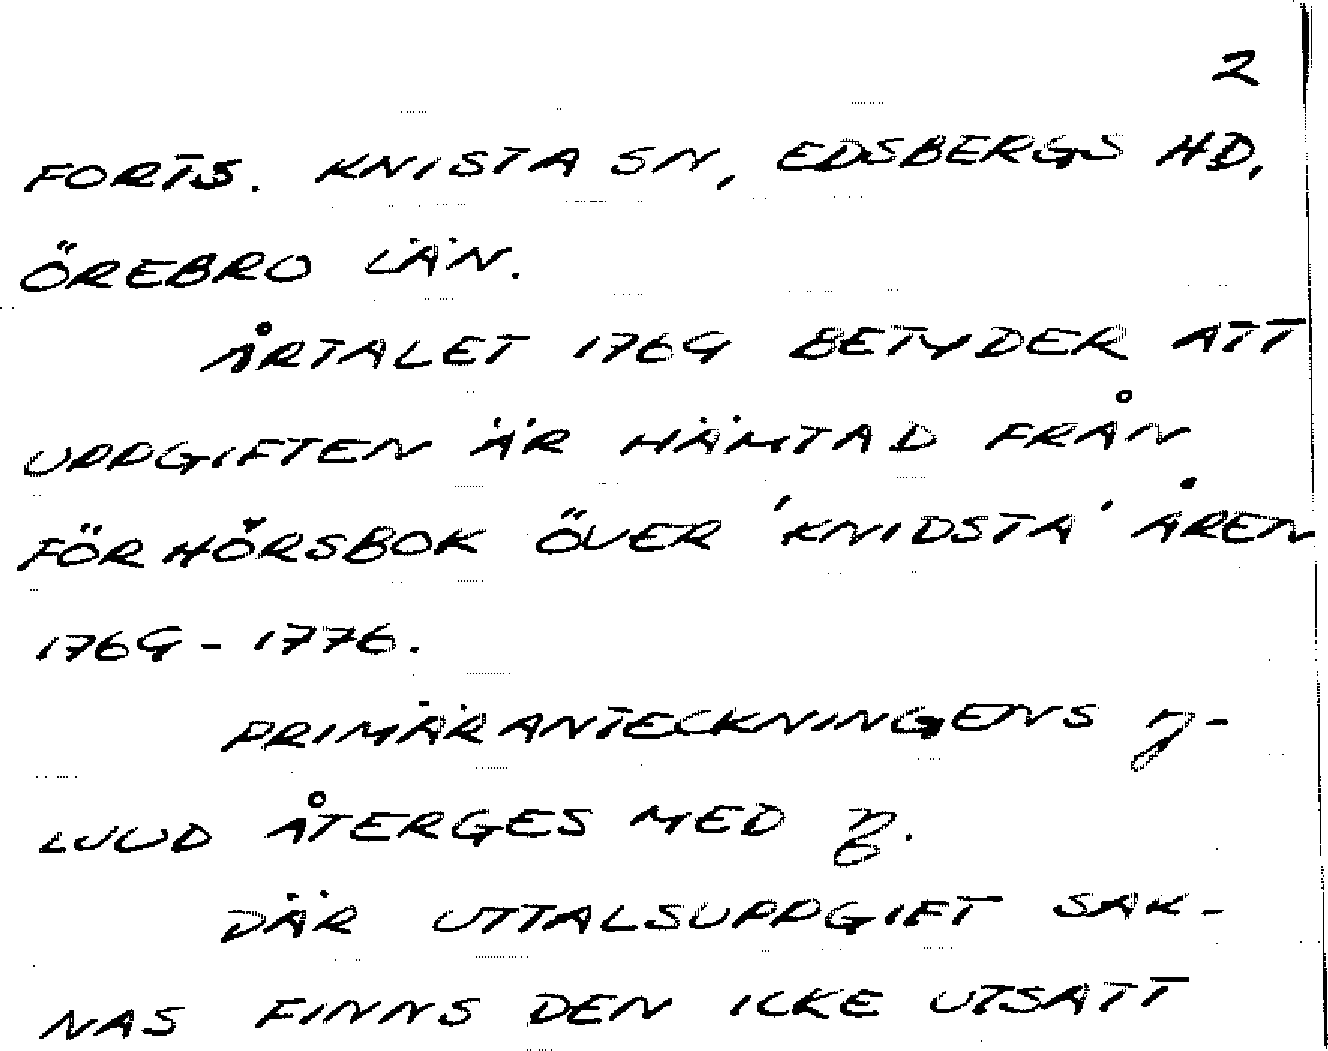 2
FORTS. KNISTA SN, EDSBERGS HD,
ÖREBRO LÄN.
ÅRTALET 1769 BETYDER ATT
UPPGIFTEN ÄR HÄMTAD FRÅN
FÖRHÖRSBOK ÖVER 'KNIDSTA' ÅREN
1769-1776.
PRIMÄRANTECKNINGENS -
LJUD ÅTERGES MED
DÄR UTTALSUPPGIFT SAK-
NAS FINNS DEN ICKE UTSATT